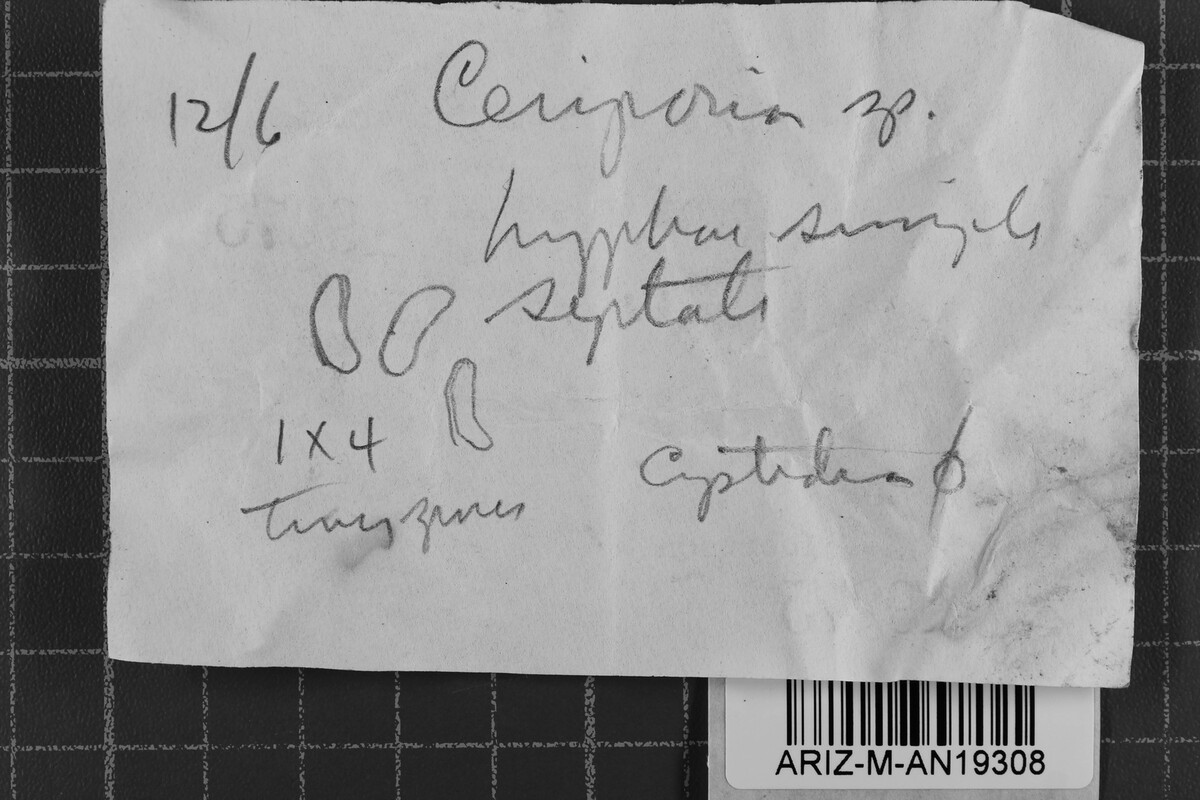 12/6 Ceriporia sp.
hyphae simple
septate
1 x 4
tiny spores
cystidia ø
ARIZ-M-AN19308